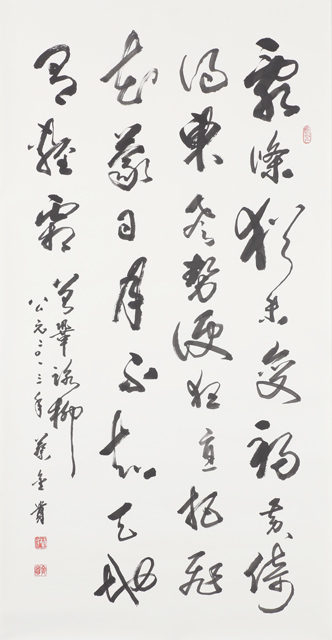 亂條猶未變初黄倚
得東風勢便狂直把飛
花蒙日月不知天地
有清霜 曾鞏詠柳
公元二〇一三年 金貴